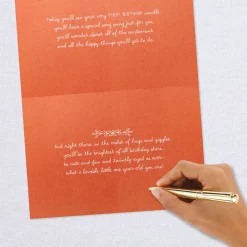 Today you'll see your very FIRST BIRTHDAY candle
you'll have a special song sung just for you,
you'll wonder about all of the excitement
and all the happy things you'll get to do.
but right there in the midst of hugs and giggles
you'll be the brightest of all birthday stars...
so cute and fun and twinkly-eyed as ever-
what a lovable little one-year-old you are.